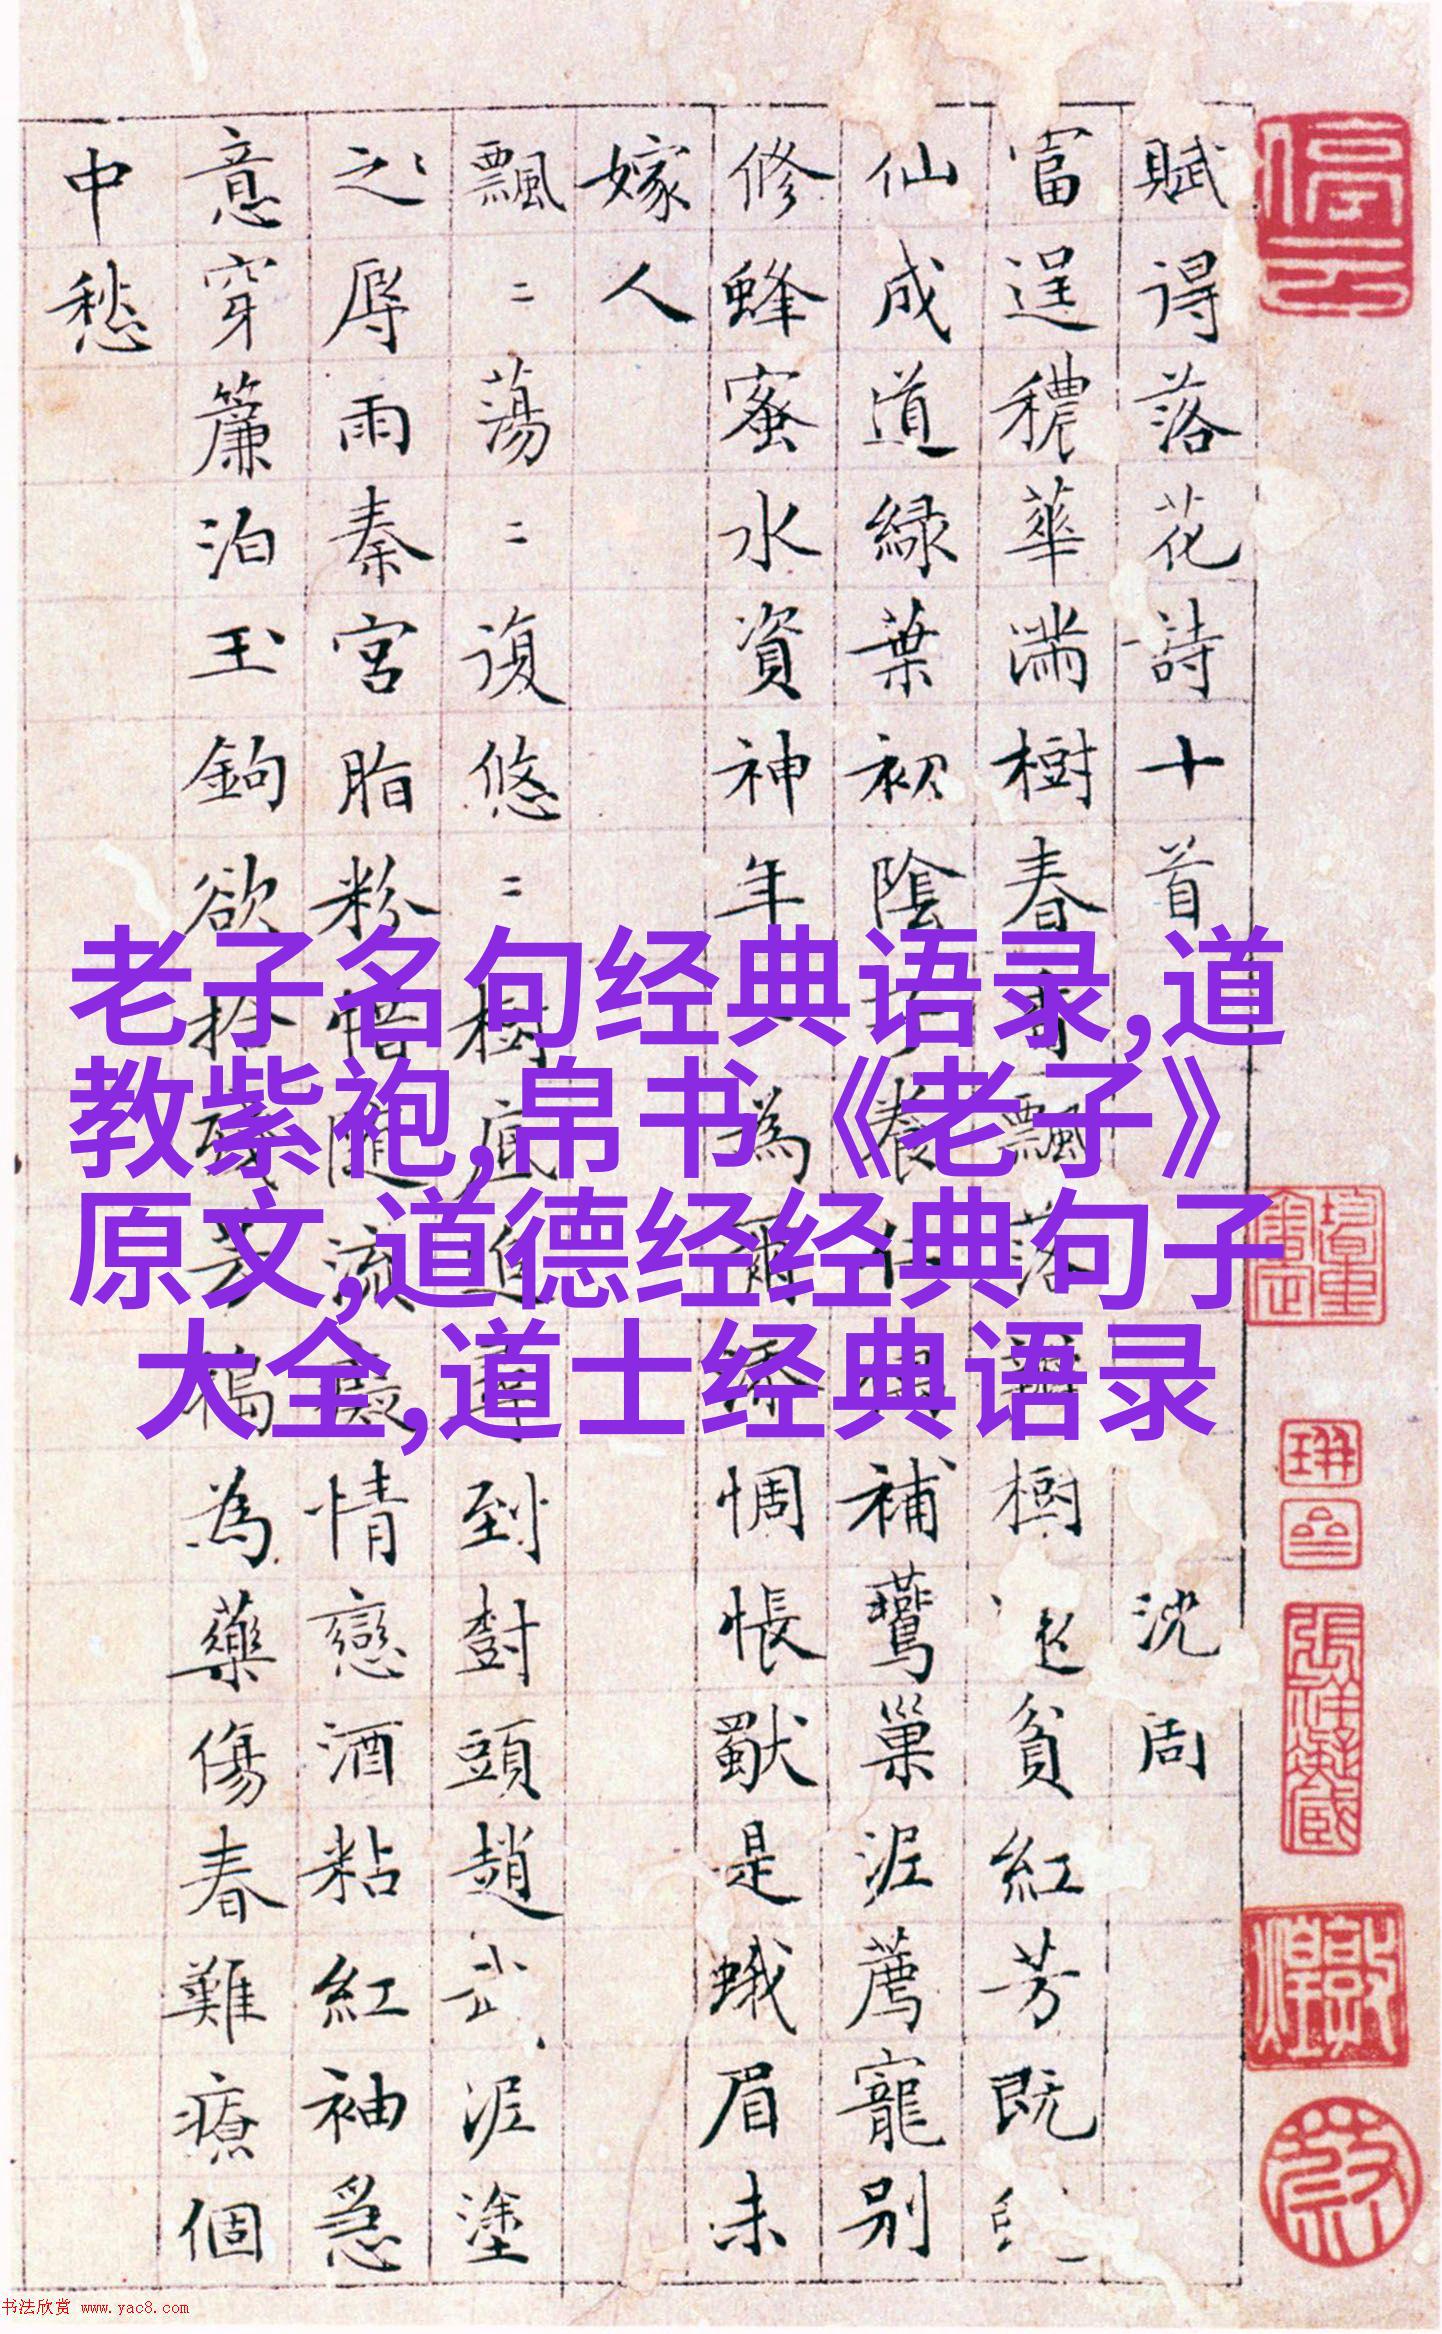 賦得落花詩十首 沈周
富逞穠華滿樹春 飄落樹貧紅芳既
仙成道緑葉初陰子養仁補鶯巢泥薦寵別
修蜂蜜水資神年為爾添惆悵是蛾眉未
嫁人
飄=蕩=復悠=樹底追尋到樹頭趙武泥塗
之辱雨秦宮脂粉惜隨流癡情戀酒粘紅袖急
意穿簾泊玉鉤欲拾殘芳搗為藥傷春難療個
中愁
老子名句经典语录,道
教紫袍,帛书《老子》
原文,道德经经典句子
大全,道士经典语录
书法欣赏 www.yac8.com